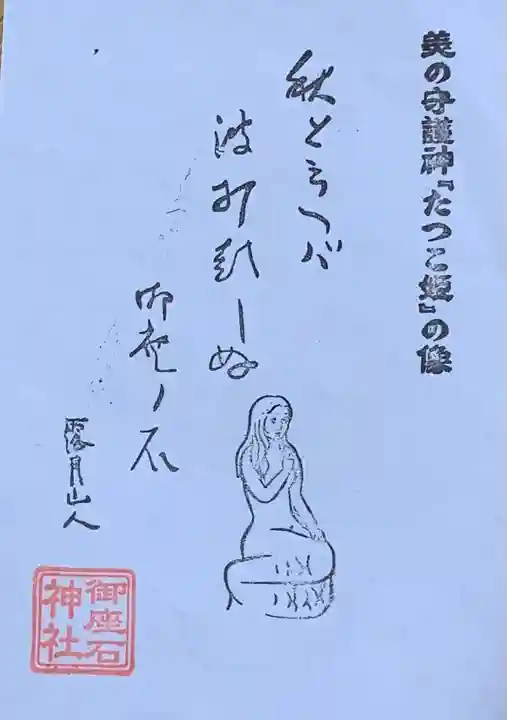 美の守護神『たつこ姫』の像
秋とらへバ
波打到しぬ
御座ノ石
露月山人
御座石
神社